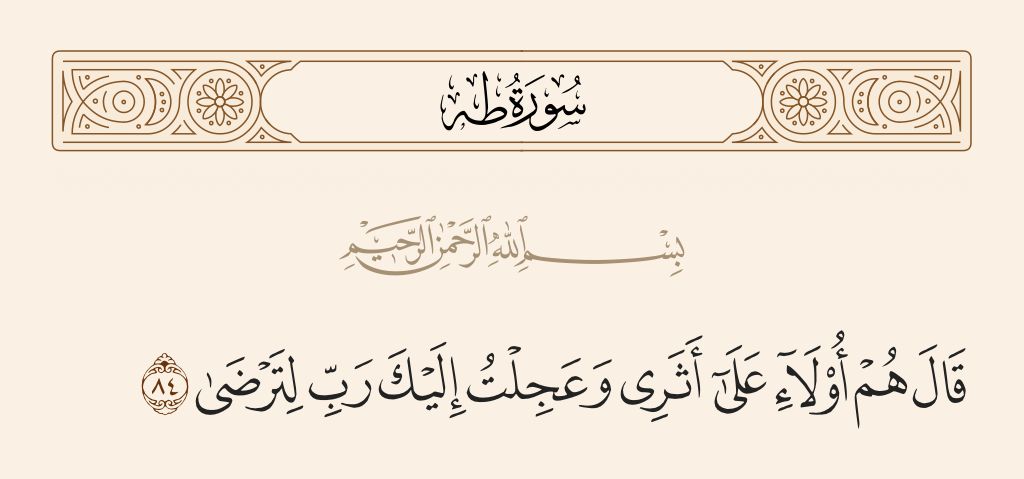 سُورَةُ طه
بِسْمِ ٱللَّهِ ٱلرَّحْمَٰنِ ٱلرَّحِيمِ
قَالَ هُمْ أُو۟لَآءِ عَلَىٰٓ أَثَرِى وَعَجِلْتُ إِلَيْكَ رَبِّ لِتَرْضَىٰ ٨٤